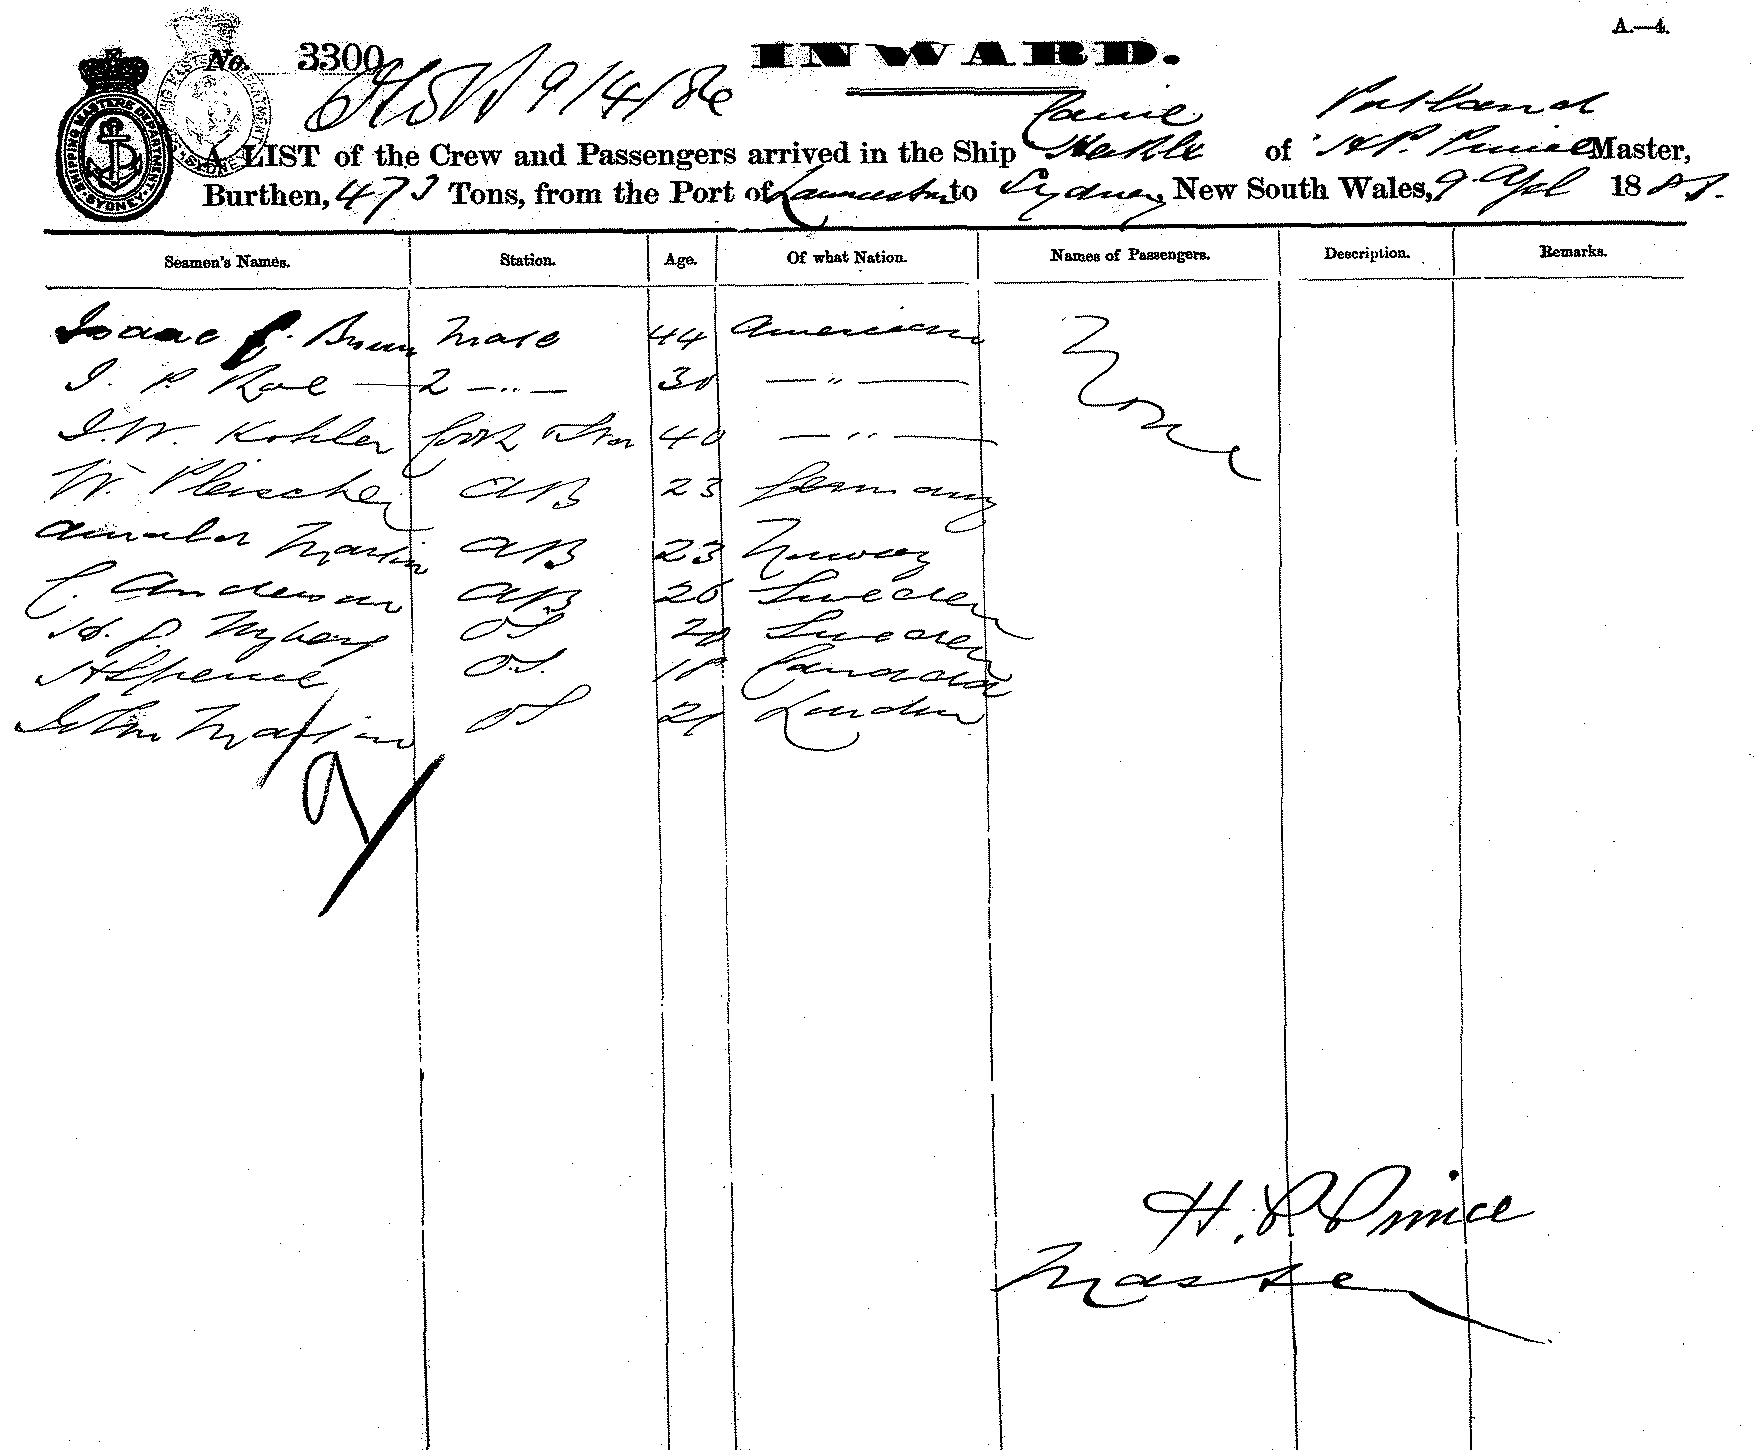 A.—4.
No. 3300
INWARD.
9/4/86
Carrie Portland
A LIST of the Crew and Passengers arrived in the Ship Heckle of H P. Prince Master,
Burthen, 473 Tons, from the Port of Launceston to Sydney, New South Wales, 9 Apl 188
SHIPPING MASTERS DEPARTMENT
SYDNEY
Seamen's Names. Station. Age. Of what Nation. Names of Passengers. Description. Remarks.
Isaac Mate 44 American None
J. P. 2 — " — 30 — " —
J.W. Kohler Cook 40 — " —
W. AB 23 Germany
Martin AB 23 Norway
C. Anderson AB 26 Sweden
H. J. Nyberg OS 20 Sweden
H Spence O.S. 18 Canada
John Martin OS 21 London
9/
H. P Prince
Master